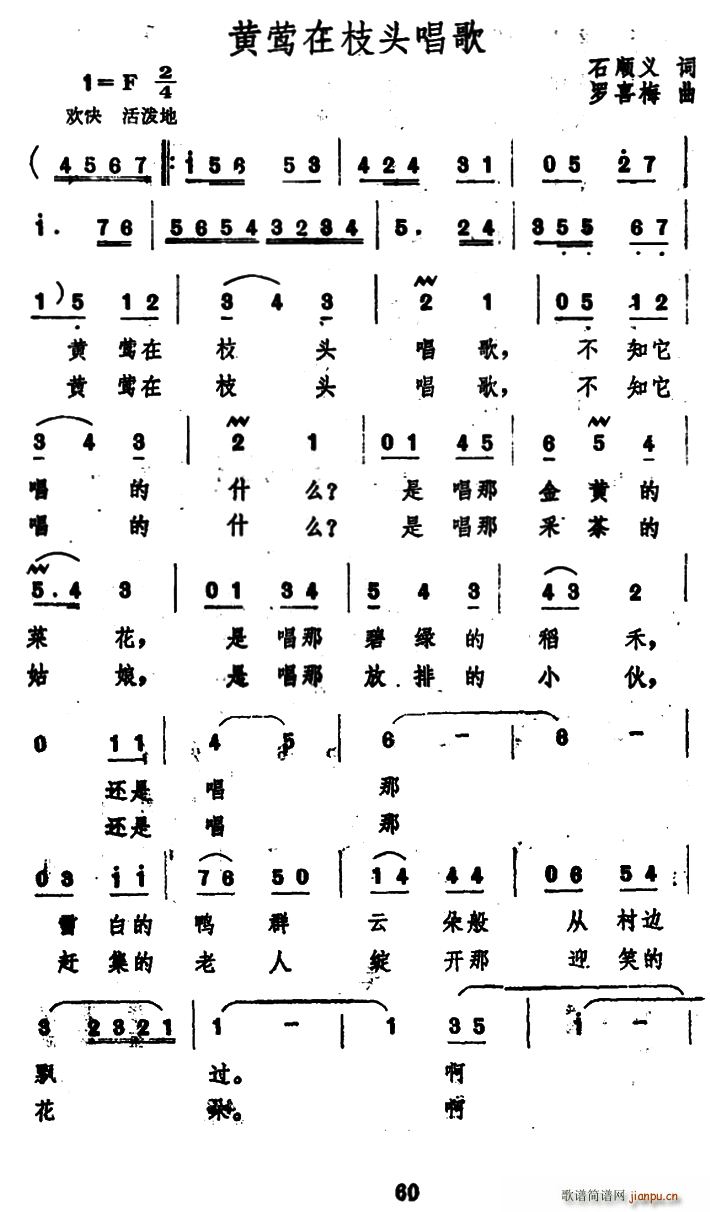 黄莺在枝头唱歌
1=F 2/4
石顺义 词
罗喜梅 曲
欢快 活泼地
( 4567 ‖: i56 53 | 424 31 | 05 27
i. 76 | 5654 3234 | 5. 24 | 355 67
1) 5 12 | 3 4 3 | 2 1 | 05 12
黄 莺在 枝 头 唱 歌， 不 知它
黄 莺在 枝 头 唱 歌， 不 知它
3 4 3 | 2 1 | 01 45 | 6 5 4
唱 的 什 么？ 是 唱那 金 黄 的
唱 的 什 么？ 是 唱那 采 茶 的
5.4 3 | 01 34 | 5 4 3 | 43 2
菜 花， 是 唱那 碧 绿 的 稻 禾，
姑 娘， 是 唱那 放 排 的 小 伙，
0 11 | 4 5 | 6 - | 6 -
还是 唱 那
还是 唱 那
03 ii | 76 50 | 14 44 | 06 54
雪 白的 鸭 群 云 朵般 从 村边
赶 集的 老 人 绽 开那 迎 笑的
3 2321 | 1 - | 1 35 | i -
飘 过。 啊
花 朵。 啊
60
歌谱简谱网 jianpu.cn